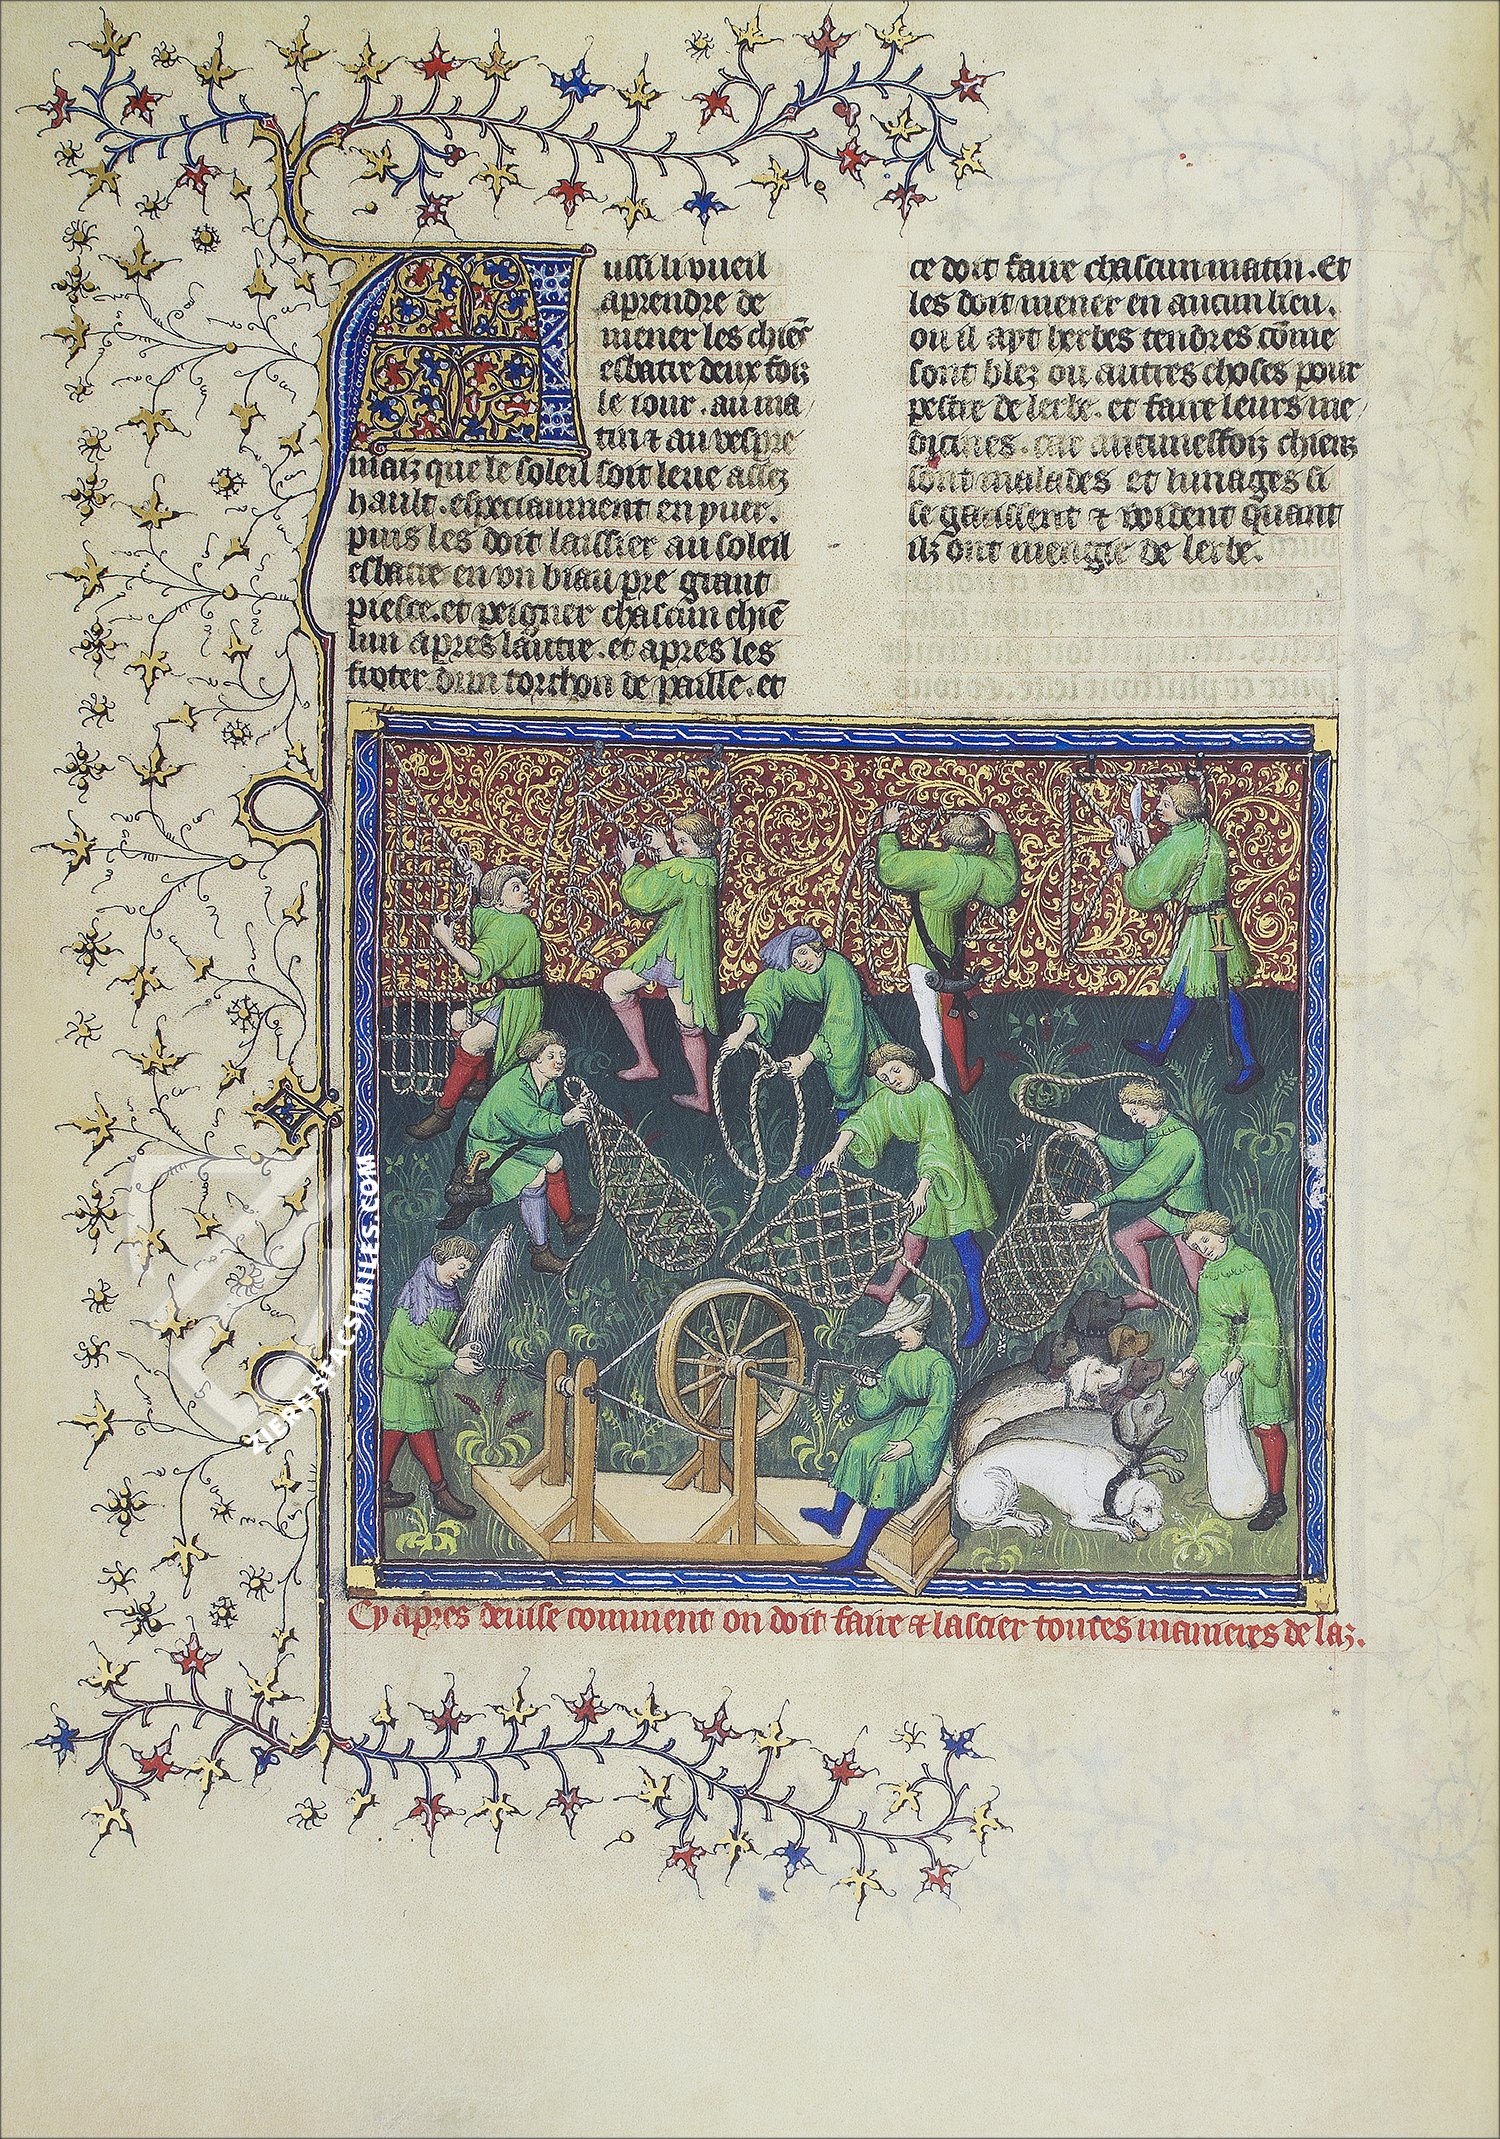 Aussi li vueil
aprendre de
mener les chiēs
esbatre deux foiz
le iour. au ma
tin ⁊ au vespre
maiz que le soleil soit leue assez
hault. especiaument en yuer.
puis les doit laissier au soleil
esbatre en vn biau pre grant
piesce. et peigner chascun chiē
lun apres lautre. et apres les
froter dun torchon de paille. et
ce doit faire chascun matin. Et
les doit mener en aucun lieu.
ou il ayt herbes tendres cōme
sont blez ou autres choses pour
pestre de lerbe. et faire leurs me
dicines. car aucunesfoiz chiens
sont malades et
se ⁊ vuident quant
ilz ont mengie de lerbe.
Cy apres deuise comment on doit faire ⁊ lascier toutes manieres de laz.
ZIEREISFACSIMILES.COM